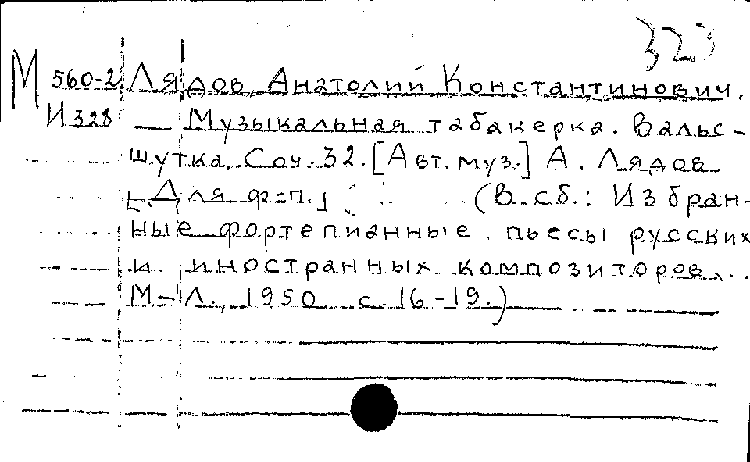 323
М 560-2 Лядов, Анатолий Константинович.
И 328 — Музыкальная табакерка. Вальс-
шутка. Соч. 32. [Авт. муз.] А. Лядов
[Для ф-п.] (В сб.: Избран-
ные фортепианные пьесы русских
и иностранных композиторов...
М-Л., 1950 с. 16-19.)